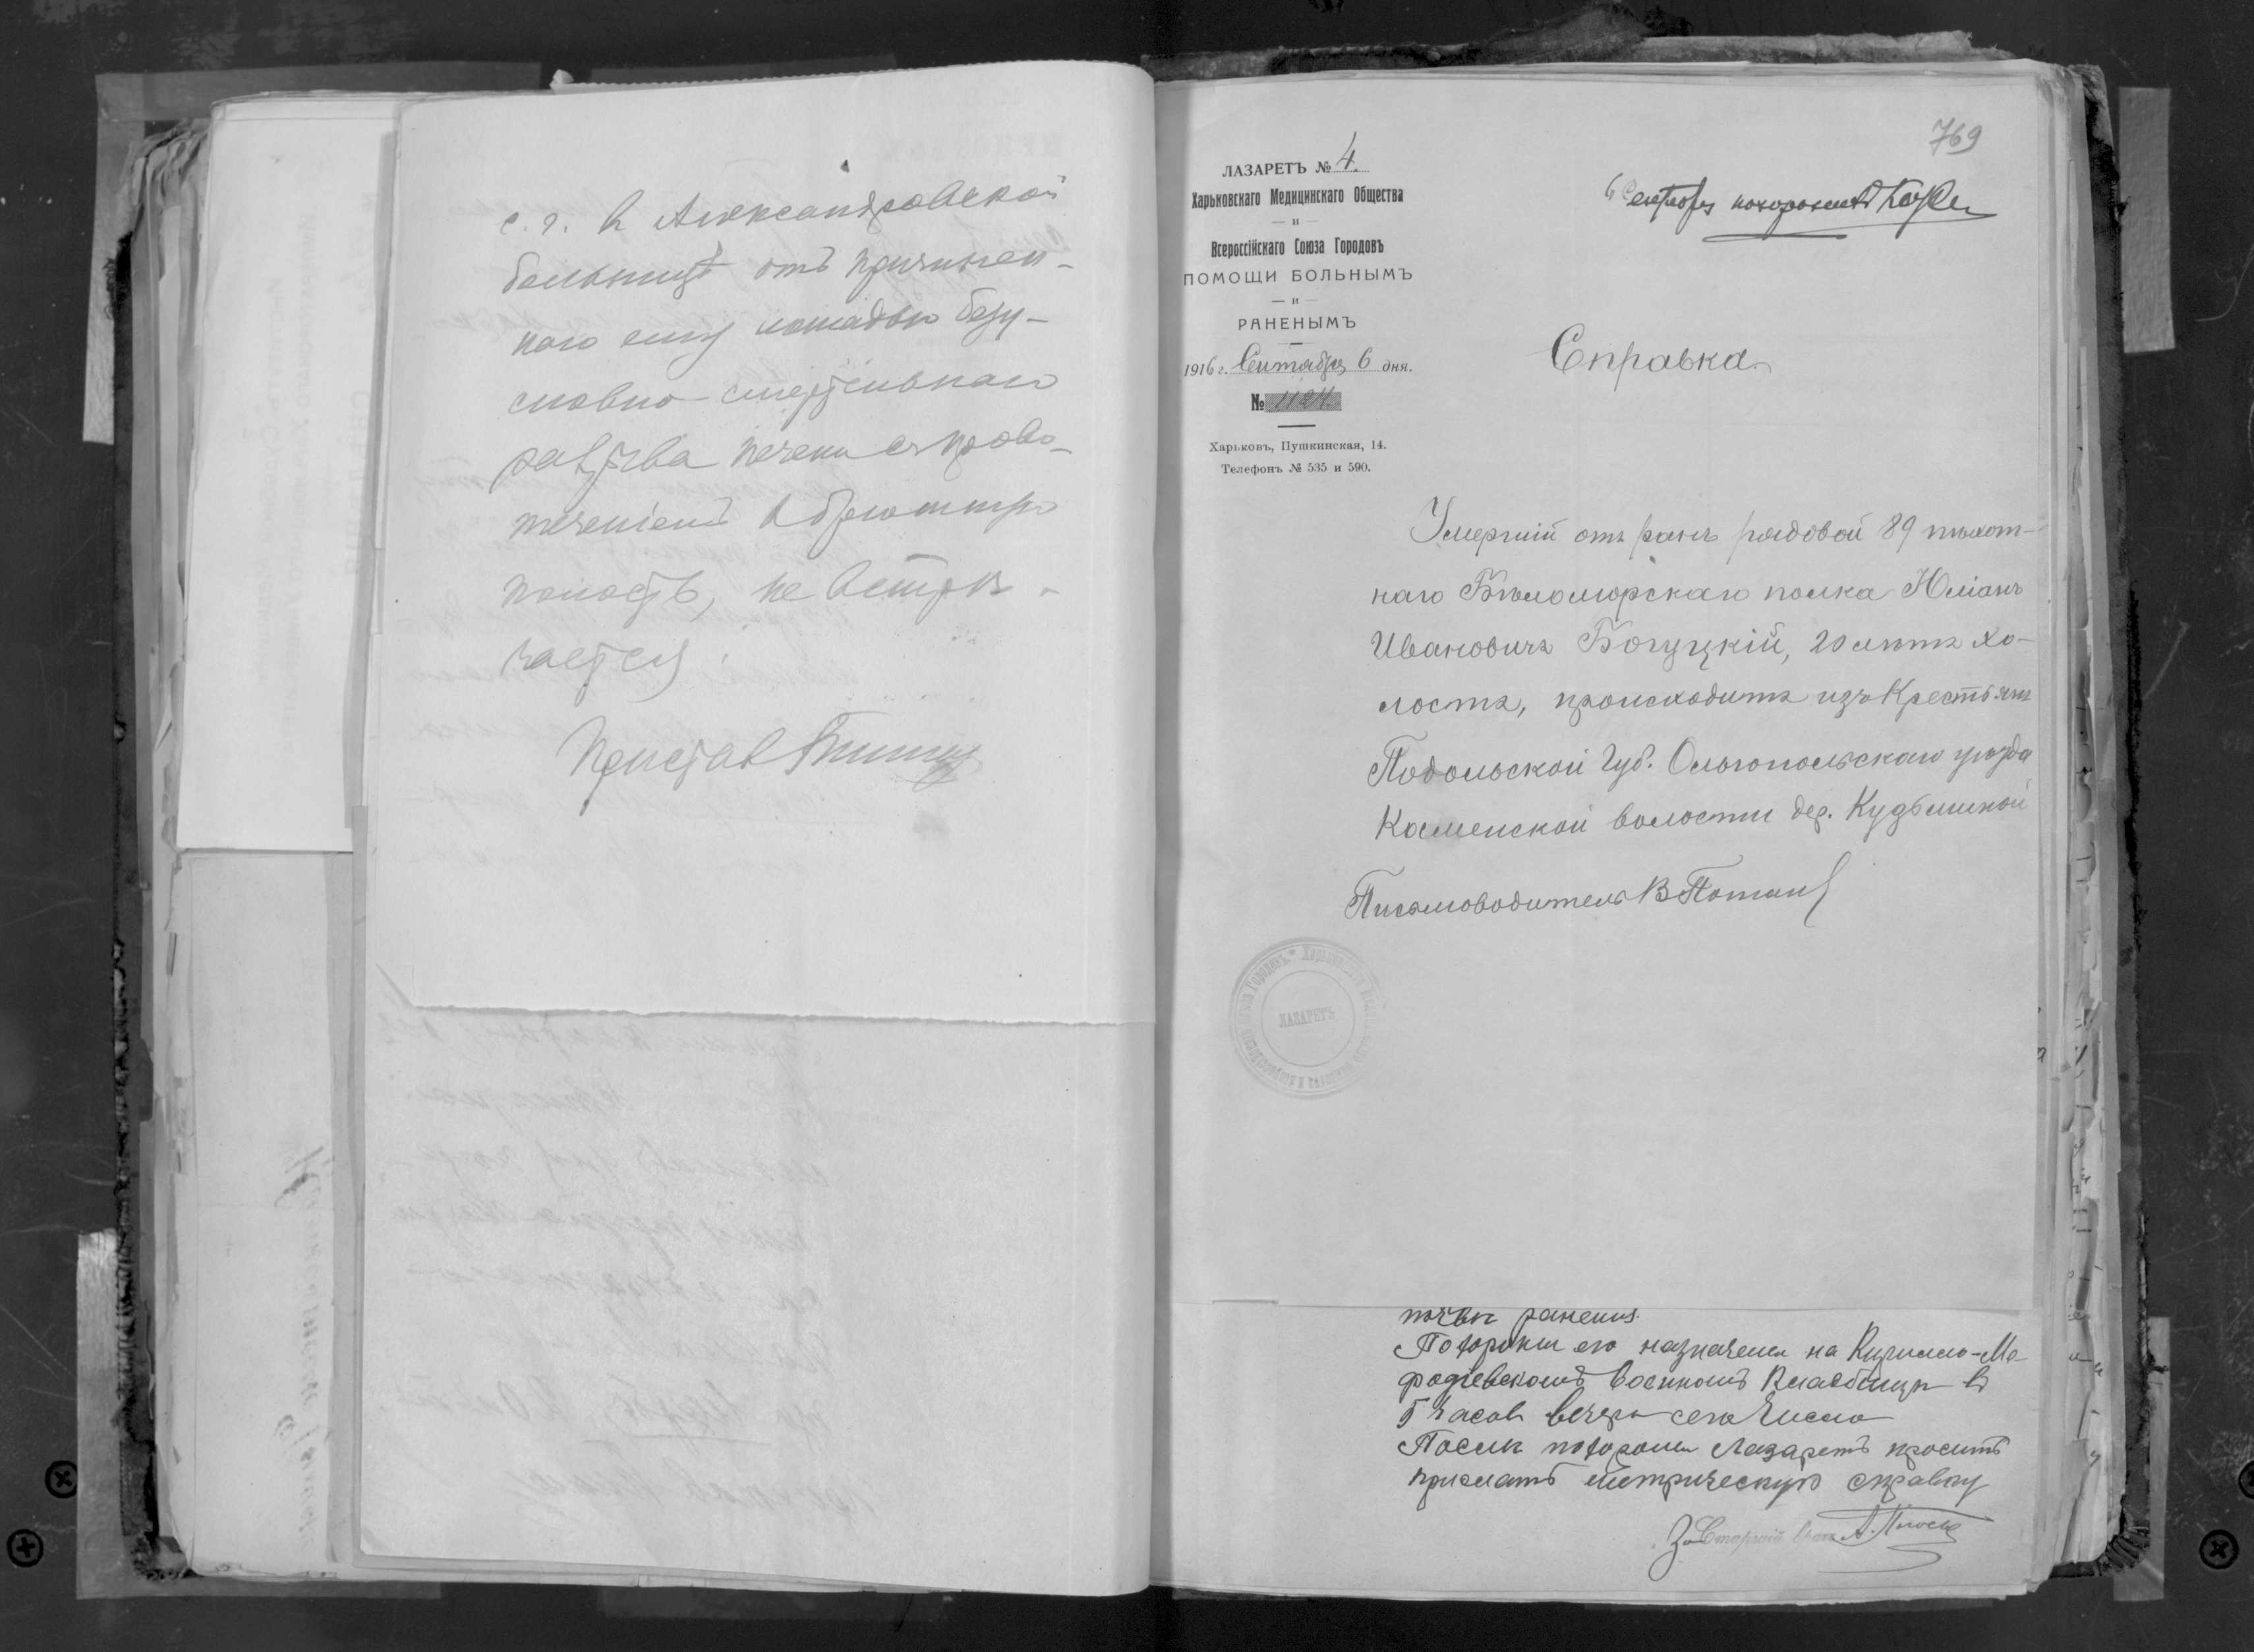 с. г. в Александровской
больницѣ отъ причинен-
наго ему лошадью безу-
словно смертельнаго
разрыва печени съ крово-
теченіемъ в брюшную
полость, не встрѣ-
чается.
Пристав
769
ЛАЗАРЕТЪ № 4.
Харьковскаго Медицинскаго Общества
— и —
Всероссійскаго Союза Городовъ
ПОМОЩИ БОЛЬНЫМЪ
— и —
РАНЕНЫМЪ
1916 г. Сентября 6 дня.
№ 1124.
Харьковъ, Пушкинская, 14.
Телефонъ № 535 и 590.
6 Сентября
Справка
Умершій отъ ранъ рядовой 89 пѣхот-
наго Бѣломорскаго полка Юліанъ
Ивановичъ Богуцкій, 20 лѣтъ хо-
лостъ, происходитъ изъ Крестьянъ
Подольской Губ. Ольгопольскаго уѣзда
Каменской волости дер.
Письмоводитель В Потап
ЛАЗАРЕТЪ
ранения.
Похороны его назначены на Кирилло-Ме-
фодіевскомъ Военномъ Кладбищѣ в
5 часов вечера сего Числа
Послѣ похорон Лазаретъ проситъ
прислать метрическую справку
За Старшій врач